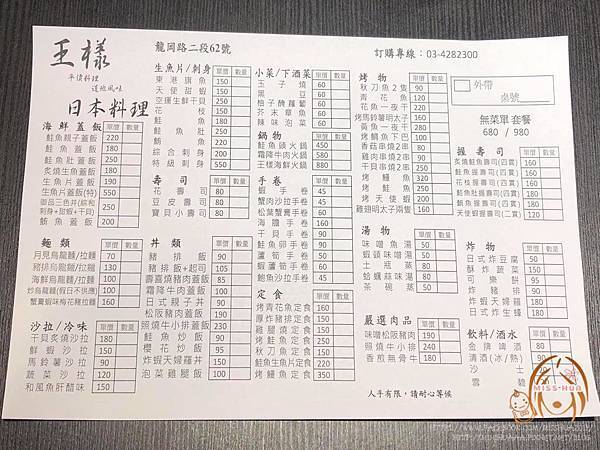 王樣
平價料理
道地風味
日本料理
龍岡路二段62號
訂購專線:03-4282300
外帶
桌號
無菜單 套餐
680 / 980
海鮮蓋飯 單價 數量
鮭魚親子蓋飯 220
鮭魚蓋飯 180
鮭魚肚蓋飯 200
炙燒生魚蓋飯 180
生魚片蓋飯 190
生魚片蓋飯(特) 550
御品三色丼(綜和刺身+甜蝦+干貝) 320
鮪魚蓋飯 200
麵類 單價 數量
月見烏龍麵/拉麵 70
豬排烏龍麵/拉麵 130
海鮮烏龍麵/拉麵 100
炒烏龍麵(假日不供應) 100
蟹黃蝦味梅花豬拉麵 160
沙拉/冷味 單價 數量
干貝炙燒沙拉 180
鮮蝦沙拉 150
馬鈴薯沙拉 90
蔬菜沙拉 120
和風魚肝醋味 150
生魚片/刺身 單價 數量
東港旗魚 150
天使甜蝦 150
空運生鮮干貝 250
花枝 150
鮭魚 150
鮭魚肚 200
鮪魚 220
綜合刺身 200
特級刺身 550
壽司 單價 數量
花壽司 80
豆皮壽司 50
寶貝小壽司 80
丼類 單價 數量
豬排飯 90
豬排飯+起司 105
壽喜燒豬肉蓋飯 85
霜降牛肉蓋飯 100
日式親子丼 90
松阪豬肉蓋飯 190
照燒牛小排蓋飯 230
鮭魚炒飯 90
櫻花炒飯 90
炸蝦天婦羅丼 150
泡菜雞腿飯 100
小菜/下酒菜 單價 數量
玉子燒 60
黑豆 60
柚子醃蘿蔔 60
芥末章魚 60
辣味泡菜 50
鍋物 單價 數量
鮭魚頭火鍋 450
霜降牛肉火鍋 550
王樣海鮮火鍋 880
手卷 單價 數量
蝦手卷 45
蟹肉沙拉手卷 45
松葉蟹膏手卷 60
海膽手卷
干貝手卷 90
鮭魚卵手卷 100
蘆筍手卷 40
蝦蘆筍手卷 60
鮑魚沙拉手卷 50
定食 單價 數量
烤青花魚定食 170
厚炸豬排定食 150
雞腿燒定食 150
烤鮭魚定食 250
秋刀魚定食 160
鮭魚生魚片定食 220
烤鰻魚定食 350
烤物 單價 數量
秋刀魚2隻 90
青花魚 120
花魚一夜干 220
烤馬鈴薯明太子 150
黃魚一夜干 280
烤鯛魚下巴 180
香菇串燒2串 50
雞肉串燒2串 90
烤鰻魚 320
烤鮭魚 200
烤天使蝦 240
雞翅明太子兩隻 160
湯物 單價 數量
味噌魚湯 50
蝦頭味噌湯 50
土瓶蒸 80
蛤蠣蒜味湯 60
茶碗蒸 50
嚴選肉品 單價 數量
味噌松阪豬肉 180
照燒牛小排 240
香煎無骨牛 180
握壽司 單價 數量
炙燒鮭魚握壽司(四貫) 160
鮭魚握壽司(四貫) 160
花枝握壽司(四貫) 160
蝦握壽司(四貫) 160
鮪魚握壽司(四貫) 200
天使蝦握壽司(二貫) 160
炸物 單價 數量
日式炸豆腐 50
酥炸蔬菜 150
可樂餅 100
炸豬排 90
炸蝦天婦羅 180
日式炸生蠔 180
飲料/酒水 單價 數量
金牌啤酒
清酒(冰/熱)
沙
雪碧
人手有限,請耐心等候
MISS-HUA